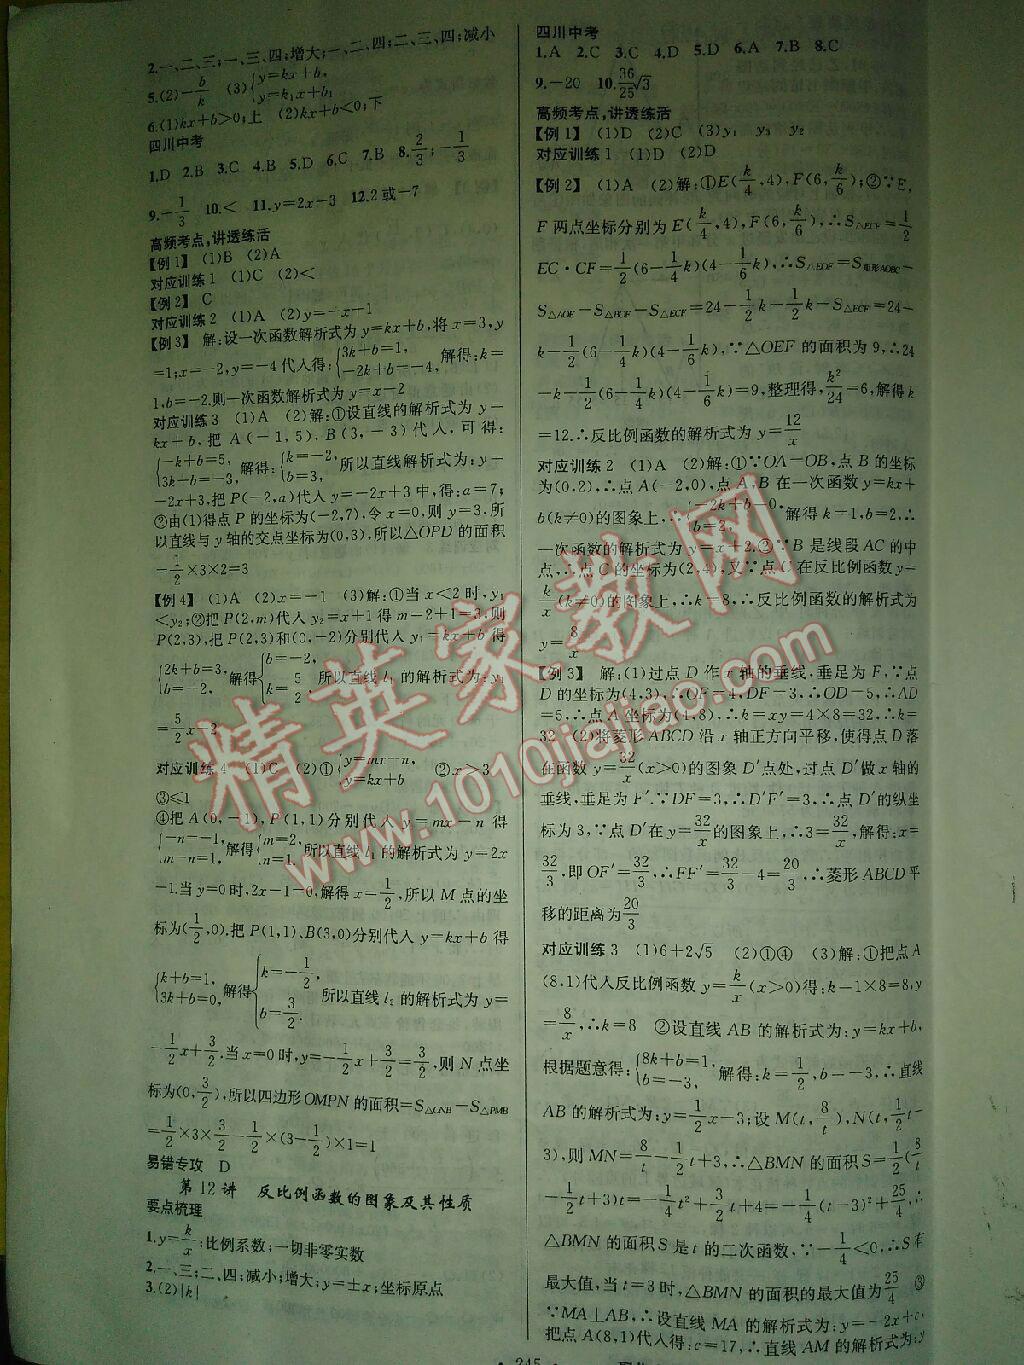 2.一、二、三;一、三、四;增大;一、二、四;二、三、四;减小
5.(2)-b/k (3){y=kx+b, y=k₁x+b₁
6.(1)kx+b>0;上 (2)kx+b<0;下
四川中考
1.D 2.B 3.C 4.B 5.D 6.C 7.B 8.2/3;-1/3
9.-1/3 10.< 11.y=2x-3 12.2或-7
高频考点,讲透练活
【例1】 (1)B (2)A
对应训练1 (1)C (2)<
【例2】 C
对应训练2 (1)A (2)y=-x-1
【例3】 解:设一次函数解析式为y=kx+b,将x=3,y
=1;x=-2,y=-4代入得:{3k+b=1, -2k+b=-4, 解得:k=
1,b=-2.则一次函数解析式为y=x-2
对应训练3 (1)A (2)解:①设直线的解析式为y=
kx+b,把A(-1,5),B(3,-3)代入,可得:
{-k+b=5, 3k+b=-3, 解得:{k=-2, b=3, 所以直线解析式为:y=
-2x+3,把P(-2,a)代入y=-2x+3中,得:a=7;
②由(1)得点P的坐标为(-2,7),令x=0,则y=3,所
以直线与y轴的交点坐标为(0,3),所以△OPD的面积
=1/2×3×2=3
【例4】 (1)A (2)x=-1 (3)解:①当x<2时,y₁
<y₂;②把P(2,m)代入y₂=x+1得m=2+1=3,则
P(2,3),把P(2,3)和(0,-2)分别代入y₁=kx+b得
{2k+b=3, b=-2, 解得{b=-2, k=5/2, 所以直线l₁的解析式为:y₁
=5/2x-2
对应训练4 (1)C (2)①{y=mx-n, y=kx+b ②x>3
③≤1
④把A(0,-1),P(1,1)分别代入y=mx-n得
{-n=-1, m-n=1, 解得{m=2, n=1, 所以直线l₁的解析式为y=2x
-1.当y=0时,2x-1=0,解得x=1/2,所以M点的坐
标为(1/2,0).把P(1,1),B(3,0)分别代入y=kx+b得
{k+b=1, 3k+b=0, 解得{k=-1/2, b=3/2. 所以直线l₂的解析式为y=
-1/2x+3/2,当x=0时,y=-1/2x+3/2=3/2,则N点坐
标为(0,3/2),所以四边形OMPN的面积=S△ONB-S△PMB
=1/2×3×3/2-1/2×(3-1/2)×1=1
易错专攻 D
第12讲 反比例函数的图象及其性质
要点梳理
1.y=k/x;比例系数;一切非零实数
2.一、三;二、四;减小;增大;y=±x;坐标原点
3.(2)|k|
四川中考
1.A 2.C 3.C 4.D 5.D 6.A 7.B 8.C
9.-20 10.36/25√3
高频考点,讲透练活
【例1】 (1)D (2)C (3)y₁ y₃ y₂
对应训练1 (1)D (2)D
【例2】 (1)A (2)解:①E(k/4,4),F(6,k/6);②∵E,
F两点坐标分别为E(k/4,4),F(6,k/6),∴S△ECF=1/2
EC·CF=1/2(6-1/4k)(4-1/6k),∴S△EOF=S矩形AOBC-
S△AOE-S△BOF-S△ECF=24-1/2k-1/2k-S△ECF=24-
k-1/2(6-1/4k)(4-1/6k),∵△OEF的面积为9,∴24
-k-1/2(6-1/4k)(4-1/6k)=9,整理得,k²/24=6,解得k
=12.∴反比例函数的解析式为y=12/x
对应训练2 (1)A (2)解:①∵OA=OB,点B的坐标
为(0,2),∴点A(-2,0),点A,B在一次函数y=kx+
b(k≠0)的图象上,∴{-2k+b=0, b=2, 解得k=1,b=2,∴
一次函数的解析式为y=x+2.②∵B是线段AC的中
点,∴点C的坐标为(2,4),又∵点C在反比例函数y=
k/x(k≠0)的图象上,∴k=8,∴反比例函数的解析式为
y=8/x
【例3】 解:(1)过点D作x轴的垂线,垂足为F,∵点
D的坐标为(4,3),∴OF=4,DF=3,∴OD=5,∴AD
=5,∴点A坐标为(4,8),∴k=xy=4×8=32,∴k=
32 (2)将菱形ABCD沿x轴正方向平移,使得点D落
在函数y=32/x(x>0)的图象D′点处,过点D′做x轴的
垂线,垂足为F′.∵DF=3,∴D′F′=3,∴点D′的纵坐
标为3,∵点D′在y=32/x的图象上,∴3=32/x,解得:x=
32/3,即OF′=32/3,∴FF′=32/3-4=20/3,∴菱形ABCD平
移的距离为20/3
对应训练3 (1)6+2√5 (2)①④ (3)解:①把点A
(8,1)代入反比例函数y=k/x(x>0)得:k=1×8=8,y
=8/x,∴k=8 ②设直线AB的解析式为:y=kx+b,
根据题意得:{8k+b=1, b=-3, 解得:k=1/2,b=-3,∴直线
AB的解析式为:y=1/2x-3;设M(t,8/t),N(t,1/2t-
3),则MN=8/t-1/2t+3,∴△BMN的面积S=1/2(8/t
-1/2t+3)t=-1/4t²+3/2t+4=-1/4(t-3)²+25/4,∴
△BMN的面积S是t的二次函数,∵-1/4<0,∴S有
最大值,当t=3时,△BMN的面积的最大值为25/4 ③
∵MA⊥AB,∴设直线MA的解析式为:y=-2x+c,
把点A(8,1)代入得:c=17,∴直线AM的解析式为:y
· 245 ·
精英家教网
www.1010jiajiao.com